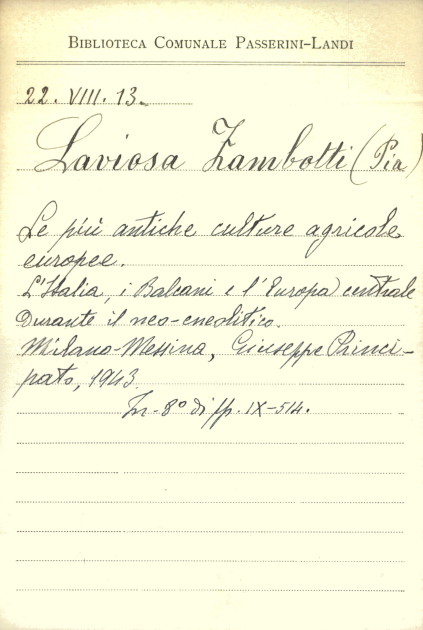 BIBLIOTECA COMUNALE PASSERINI-LANDI
22. VIII. 13.
Laviosa Zambotti (Pia)
Le più antiche culture agricole
europee.
L'Italia, i Balcani e l'Europa centrale
durante il neo-eneolitico.
Milano-Messina, Giuseppe Princi-
pato, 1943.
In-8° di pp. IX-514.